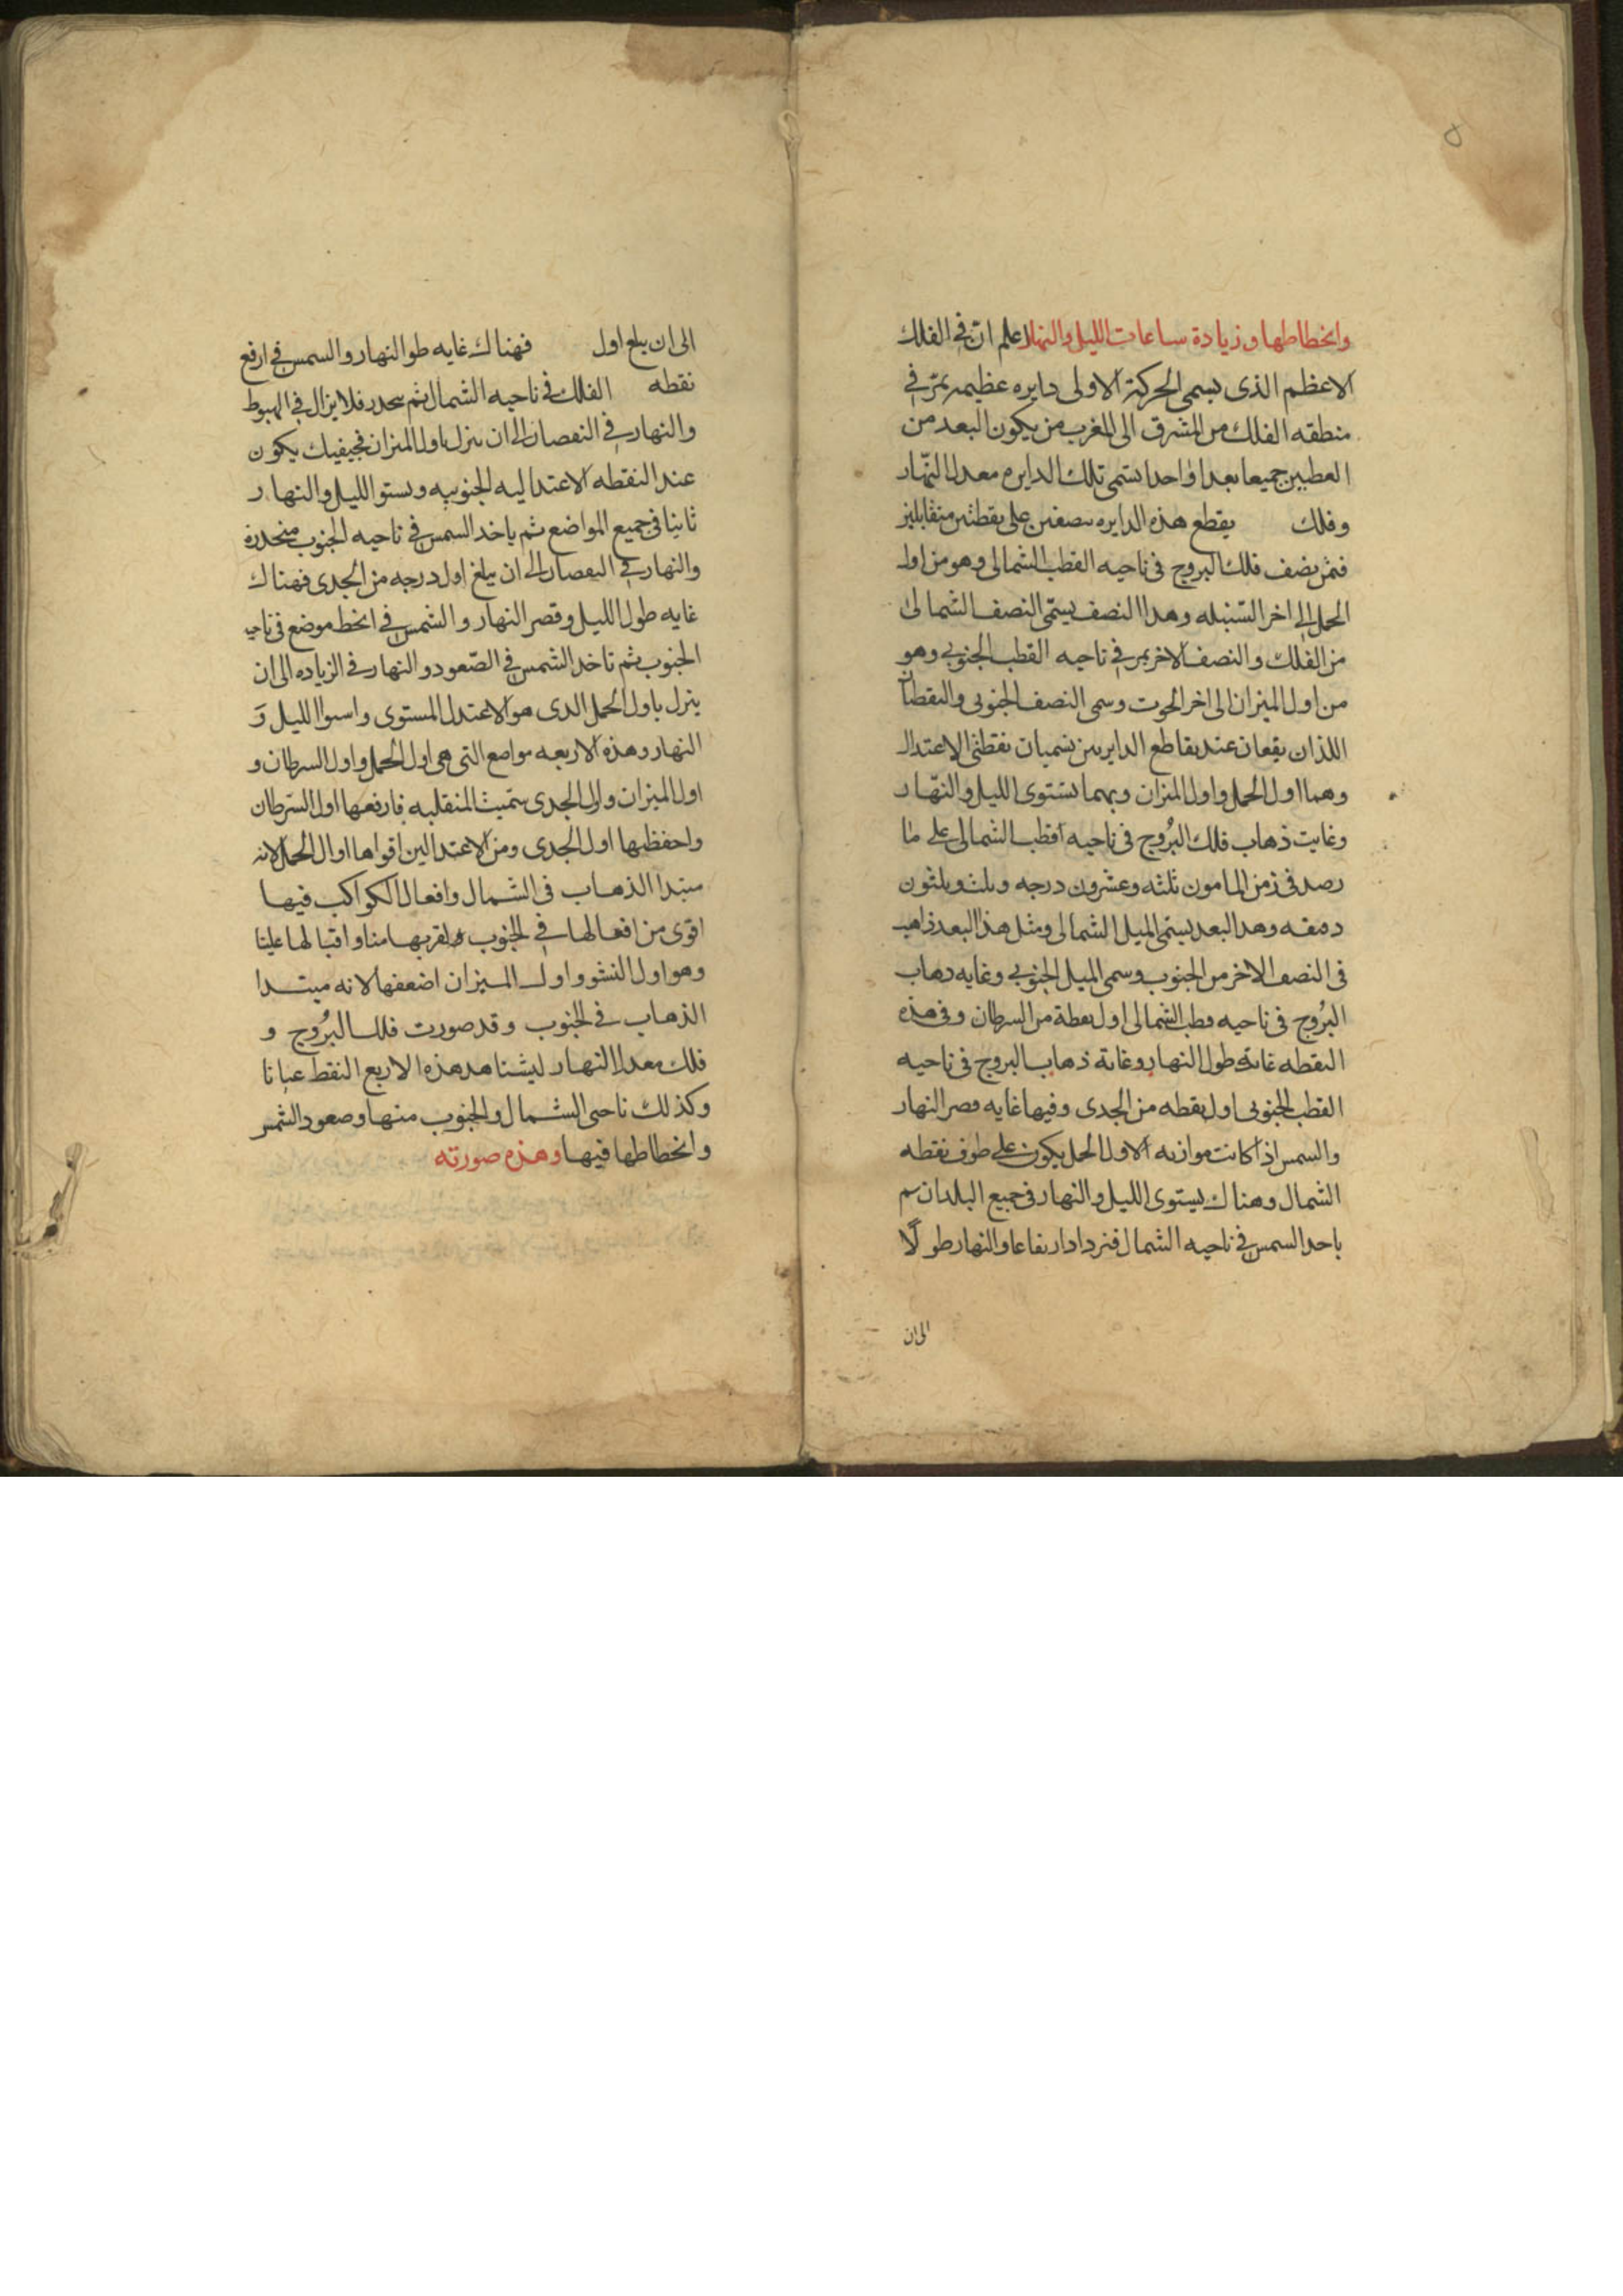 ٥
وانحطاطها وزيادة ساعات الليل والنهار اعلم ان في الفلك
الاعظم الذى يسمى الحركة الاولى دايره عظيمه تمرّ في
منطقه الفلك من المشرق الى المغرب من يكون البعد من
العطبين جميعا بعدا واحدا يسّمى تلك الدايره معدل النّهار
وفلك يقطع هذه الدايره بنصفين على نقطتين متقابلين
فيمر نصف فلك البروج فى ناحيه القطب الشمالى وهو من اول
الحمل الى اخر السّنبله وهدا النصف يسمّى النصف الشمالى
من الفلك والنصف الاخر يمر في ناحيه القطب الجنوبي وهو
من اول الميزان الى اخر الحوت وسمى النصف الجنوبى والنقطتان
اللذان يقعان عند تقاطع الدايرتين تسميان نقطتى الاعتدال
وهما اول الحمل واول الميزان وبهما تستوى الليل والنّهار
وغايت ذهاب فلك البرُوج فى ناحيه القطب الشمالى على ما
رصد فى زمن المامون ثلثه وعشرون درجه وثلث وثلثون
دقيقه وهدا البعد يسمّى الميل الشمالى ومثل هذا البعد ذاهب
فى النصف الاخر من الجنوب وسمى الميل الجنوبي وغايه دهاب
البرُوج فى ناحيه قطب الشمالى اول نقطة من السرطان وفى هذه
النقطه غاية طول النهار وغاية ذهاب البروج فى ناحيه
القطب الجنوبى اول نقطه من الجدى وفيها غايه قصر النهار
والشمس اذا كانت موازيه الاول الحمل يكون على طرف نقطه
الشمال وهناك يستوى الليل والنهار فى جميع البلدان ثم
ياخد الشمس في ناحيه الشمال فيزداد ارتفاعا والنهار طولًا
الى ان
الى ان يبلغ اول فهناك غايه طو النهار والشمس في ارفع
نقطه الفلك في ناحيه الشمال ثم ينحدر فلا يزال في الهبوط
والنهار في النقصان الى ان ينزل باول الميزان فحيفيك يكون
عند النقطه الاعتداليه الجنوبيه ويستو الليل والنهار
ثانيا في جميع المواضع ثم ياخد الشمس في ناحيه الجنوب منحدرة
والنهار في النقصان الى ان يبلغ اول درجه من الجدى فهناك
غايه طول الليل وقصر النهار والشمس في انحط موضع فى ناحيه
الجنوب ثم تاخد الشمس في الصّعود والنهار في الزياده الى ان
ينزل باول الحمل الدى هو الاعتدل المستوى واستوا الليل وَ
النهار وهذه الاربعه مواضع التى هى اول الحمل واول السرطان و
اول الميزان واول الجدى سمّيت المنقلبه فارفعها اول السّرطان
واحفظها اول الجدى ومن الاعتدالين اقواها اوال الحمل لانه
مبتدا الذهاب فى الشمال وافعال الكواكب فيها
اقوى من افعالها في الجنوب ولقربها منا واقبالها علينا
وهو اول النشو واول الميزان اضعفها لانه مبتدا
الذهاب في الجنوب وقد صورت فلك البرُوج و
فلك معدل النهار ليشاهد هذه الاربع النقط عيانا
وكذلك ناحيى الشمال والجنوب منها وصعود الشمس
وانحطاطها فيها وهذه صورته